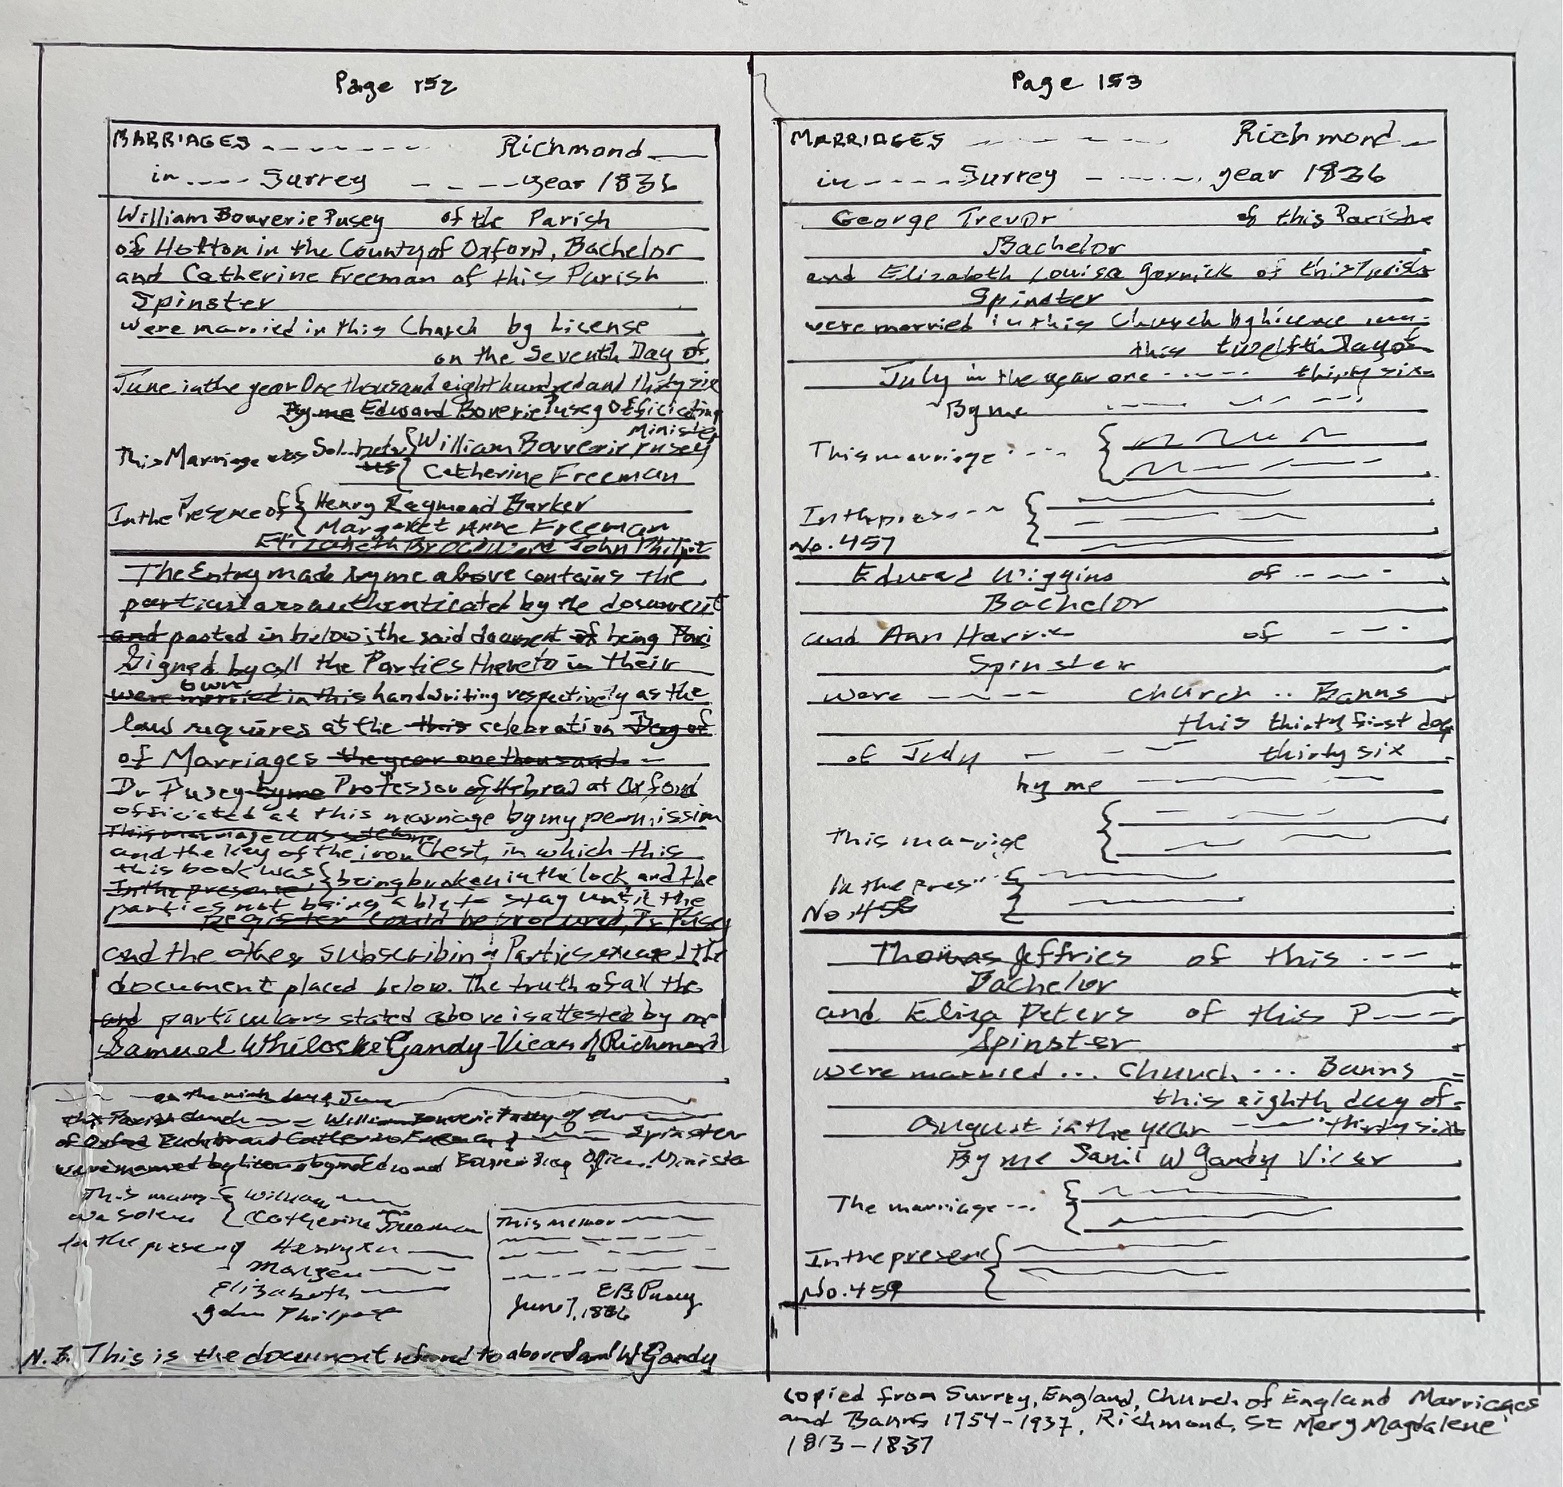 Page 152
MARRIAGES Richmond
in Surrey year 1836
William Bouverie Pusey of the Parish
of Hotton in the County of Oxford, Bachelor
and Catherine Freeman of this Parish
Spinster
were married in this Church by License
on the Seventh Day of
June in the year One thousand eight hundred and thirty six
By me Edward Boverie Pusey Officiating
Minister
This Marriage was Sol betw William Bouverie Pusey
us Catherine Freeman
In the Presence of Henry Raymond Barker
Margaret Anne Freeman
Elizabeth John Philpot
The Entry made by me above contains the
particulars authenticated by the document
and pasted in below; the said document of being Pari
Signed by all the Parties thereto in their
own
were married in this handwriting respectively as the
law requires at the this celebration Day of
of Marriages the year one thousand
Dr Pusey by me Professor of Hebrew at Oxford
officiated at this marriage by my permission
This marriage was
and the key of the iron Chest, in which this
this book was being broken in the lock and the
In the presence
parties not being able to stay until the
Register could be procured, Dr Pusey
and the other subscribing Parties execued the
document placed below. The truth of all the
and particulars stated above is attested by me
Samuel Whilocke Gandy-Vicar of Richmond
on the ninth day of June
this Parish church William Bouverie Pusey of the
of Oxford Bachelor and Catherine Freeman Spinster
were married by license by me Edward Bouverie Pusey Offic. Minister
This marr William
was solem Catherine Freeman
In the presence of Henry
Marga
Elizabeth
John Philpot
This memor
EB Pusey
June 7, 1836
N.B. This is the document referred to above Saml W Gandy
Page 153
MARRIAGES Richmond
in Surrey year 1836
George Trevor of this Parish
Bachelor
and Elizabeth Louisa Gornick of this Parish
Spinster
were married in this Church by license
this twelfth Day of
July in the year one thirty six
By me
This marriage
In the pres
No. 457
Edward Wiggins of
Bachelor
and Ann Harris of
Spinster
were church .. Banns
this thirty first day
of July thirty six
by me
This marrige
In the pres
No. 458
Thomas Jeffries of this
Bachelor
and Eliza Peters of this P
Spinster
were married ... Church ... Banns
this eighth day of
August in the year thirty six
By me Saml W Gandy Vicar
The marriage ...
In the presenc
No. 459
copied from Surrey, England, Church of England Marriages
and Banns 1754-1937, Richmond, St Mary Magdalene
1813-1837